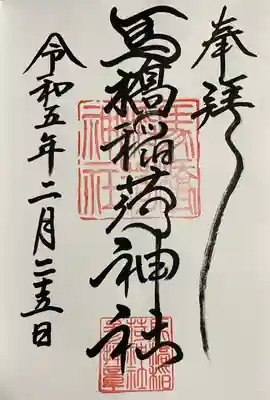 奉拝
馬橋稲荷神社
令和五年二月二十五日
馬橋稲荷神社